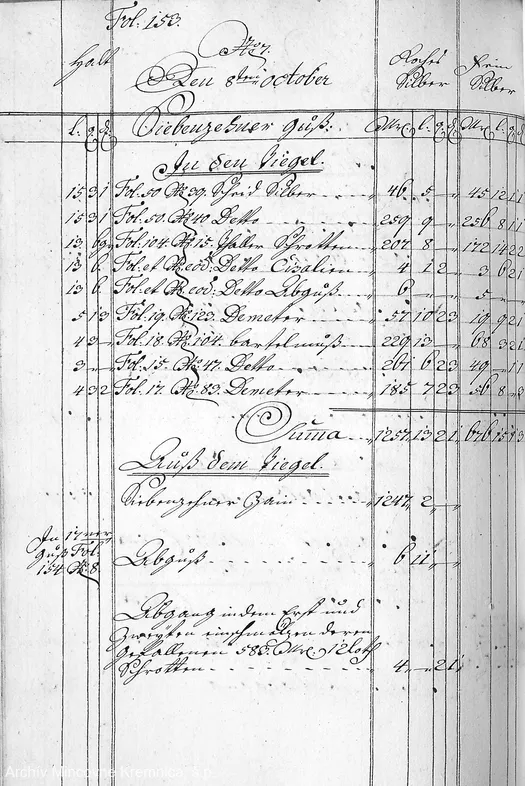 Fol. 153.
No 7.
Halt Den 8ten October Roches Silber Fein Silber
l. q. d. Siebenzehner Guß. Mrc. l. q. d. Mrc. l. q. d.
In den Tiegel.
15 3 1 Fol. 50 No 39. Schaid Silber 46 5 " " 45 12 1 1
15 3 1 Fol. 50. No 40 Detto 259 9 " " 256 8 1 1
13 Fol. 104. No 15. Thaller Schrotten 207 8 " " 172 14 2 2
13 6 Fol. et No eod: Detto Cisalien 4 1 2 " 3 6 2 1
13 6 Fol. et No eod: Detto Abguß 6 " " " 5 "
5 13 Fol. 19. No 123. Demeter 57 10 2 3 19 9 2 1
4 3 " Fol. 18. No 104. bartelmuß 229 13 " " 68 3 2 1
3 " " Fol. 15. No 47. Detto 261 6 2 3 49 " 1 1
4 3 2 Fol. 17. No 83. Demeter 185 7 2 3 56 8 " 3
Summa 1257 13 2 1 676 15 1 3
Auß dem Tiegel.
Siebenzehner Zain 1247 2 " "
In 17ner
Guß Fol.
154 No 8
Abguß 6 11 " "
Abgang in dem Erst und
Zweyten einschmölzen deren
Gefallenen 585 Mrc 12 loth
Schrotten 4 " 2 1
Archiv Mincovne Kremnica, š.p.